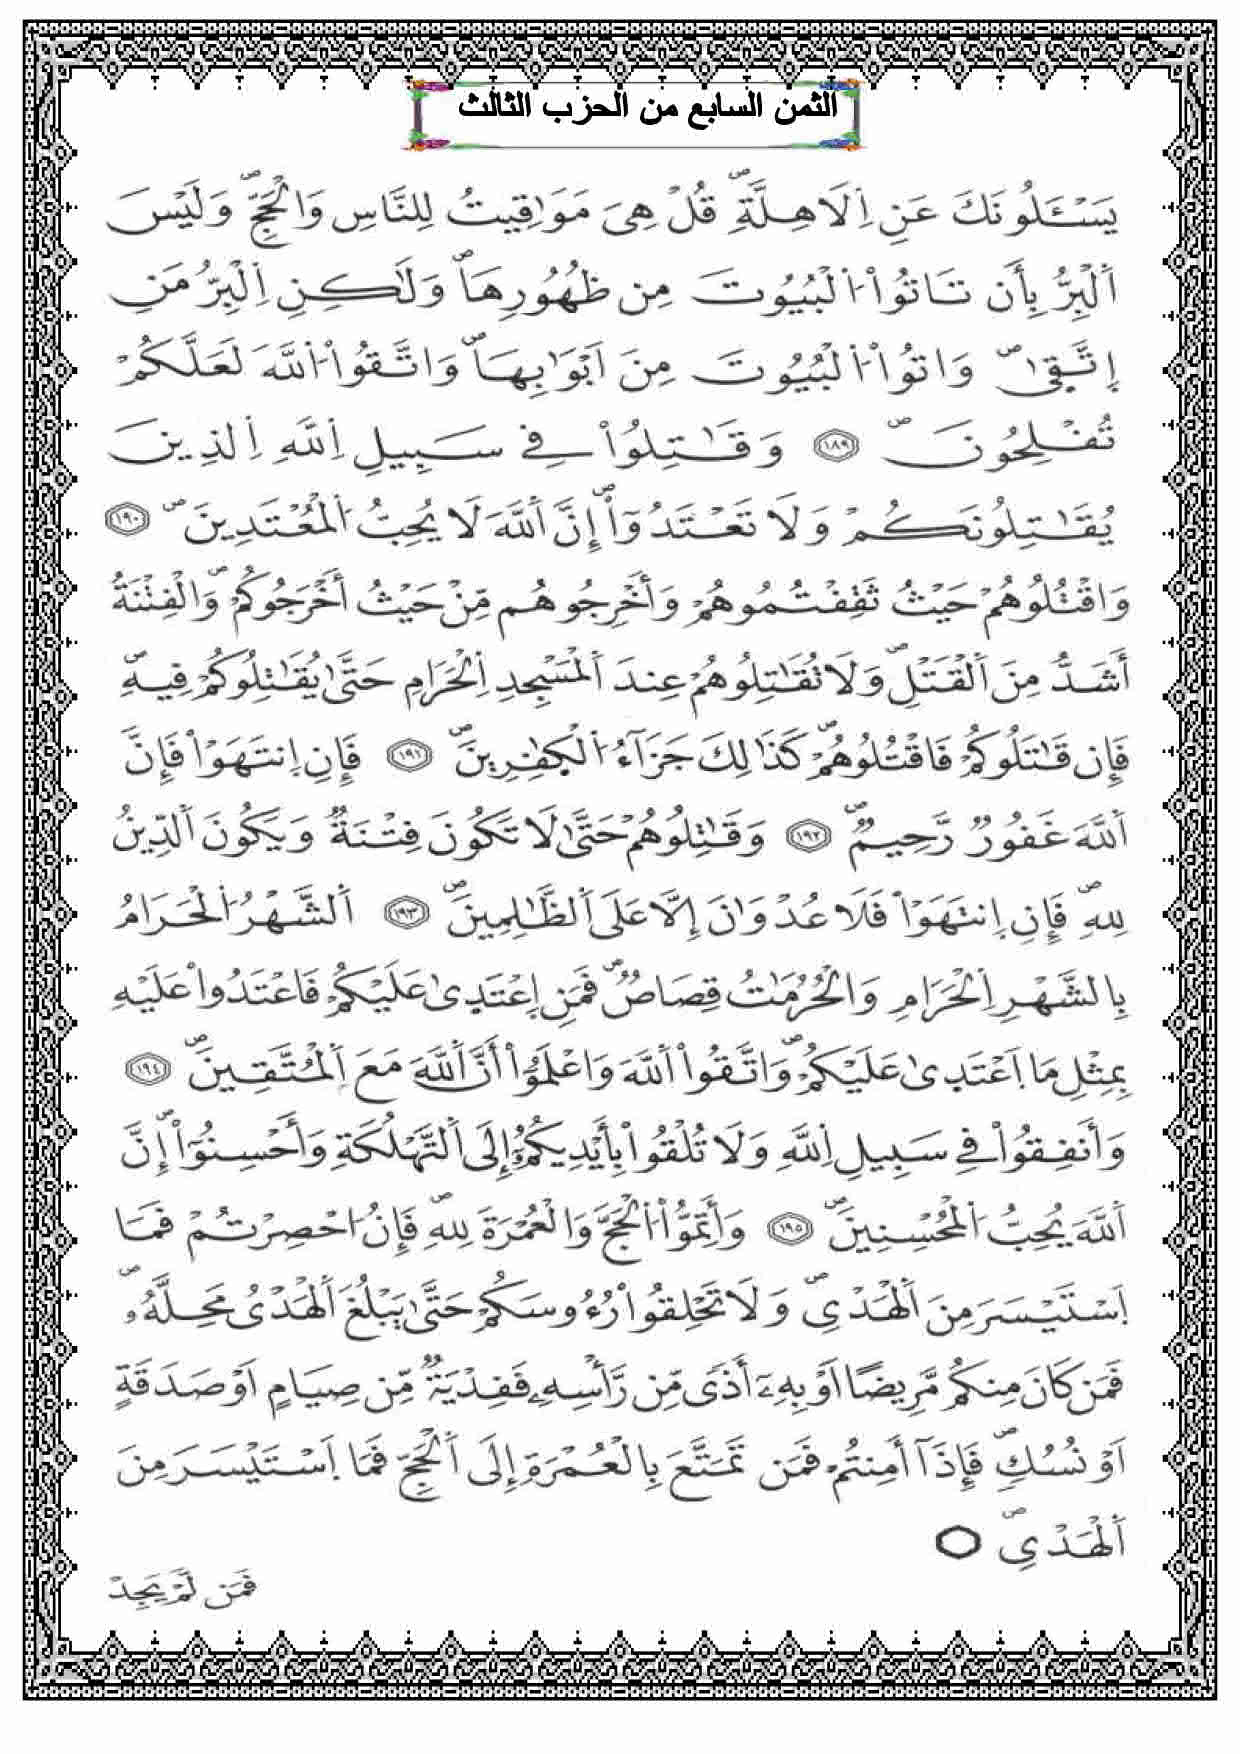 الثمن السابع من الحزب الثالث
يَسْـَٔلُونَكَ عَنِ اِ۬لَاهِلَّةِۖ قُلْ هِيَ مَوَٰقِيتُ لِلنَّاسِ وَالْحَجِّۖ وَلَيْسَ
اَ۬لْبِرُّ بِأَن تَاتُواْ اُ۬لْبُيُوتَ مِن ظُهُورِهَاۖ وَلَٰكِنِ اِ۬لْبِرُّ مَنِ
اِ۪تَّق۪ىٰۖ وَاتُواْ اُ۬لْبُيُوتَ مِنَ اَبْوَٰبِهَاۖ وَاتَّقُواْ اُ۬للَّهَ لَعَلَّكُمْ
تُفْلِحُونَۖ ١٨٩ وَقَٰتِلُواْ فِي سَبِيلِ اِ۬للَّهِ اِ۬لذِينَ
يُقَٰتِلُونَكُمْ وَلَا تَعْتَدُوٓاْۖ إِنَّ اَ۬للَّهَ لَا يُحِبُّ اُ۬لْمُعْتَدِينَۖ ١٩٠
وَاقْتُلُوهُمْ حَيْثُ ثَقِفْتُمُوهُمْ وَأَخْرِجُوهُم مِّنْ حَيْثُ أَخْرَجُوكُمْۖ وَالْفِتْنَةُ
أَشَدُّ مِنَ اَ۬لْقَتْلِۖ وَلَا تُقَٰتِلُوهُمْ عِندَ اَ۬لْمَسْجِدِ اِ۬لْحَرَامِ حَتَّىٰ يُقَٰتِلُوكُمْ فِيهِۖ
فَإِن قَٰتَلُوكُمْ فَاقْتُلُوهُمْۖ كَذَٰلِكَ جَزَآءُ اُ۬لْكٰ۪فِرِينَۖ ١٩١ فَإِنِ اِ۪نتَهَوْاْ فَإِنَّ
اَ۬للَّهَ غَفُورٞ رَّحِيمٞۖ ١٩٢ وَقَٰتِلُوهُمْ حَتَّىٰ لَا تَكُونَ فِتْنَةٞ وَيَكُونَ اَ۬لدِّينُ
لِلهِۖ فَإِنِ اِ۪نتَهَوْاْ فَلَا عُدْوَٰنَ إِلَّا عَلَى اَ۬لظَّٰلِمِينَۖ ١٩٣ اَ۬لشَّهْرُ اُ۬لْحَرَامُ
بِالشَّهْرِ اِ۬لْحَرَامِ وَالْحُرُمَٰتُ قِصَاصٞۖ فَمَنِ اِ۪عْتَد۪ىٰ عَلَيْكُمْ فَاعْتَدُواْ عَلَيْهِ
بِمِثْلِ مَا اَ۪عْتَد۪ىٰ عَلَيْكُمْۖ وَاتَّقُواْ اُ۬للَّهَ وَاعْلَمُوٓاْ أَنَّ اَ۬للَّهَ مَعَ اَ۬لْمُتَّقِينَۖ ١٩٤
وَأَنفِقُواْ فِي سَبِيلِ اِ۬للَّهِ وَلَا تُلْقُواْ بِأَيْدِيكُمُۥٓ إِلَى اَ۬لتَّهْلُكَةِ وَأَحْسِنُوٓاْۖ إِنَّ
اَ۬للَّهَ يُحِبُّ اُ۬لْمُحْسِنِينَۖ ١٩٥ وَأَتِمُّواْ اُ۬لْحَجَّ وَالْعُمْرَةَ لِلهِۖ فَإِنُ ا۟حْصِرْتُمْ فَمَا
اَ۪سْتَيْسَرَ مِنَ اَ۬لْهَدْيِۖ وَلَا تَحْلِقُواْ رُءُوسَكُمْ حَتَّىٰ يَبْلُغَ اَ۬لْهَدْيُ مَحِلَّهُۥۖ
فَمَن كَانَ مِنكُم مَّرِيضًا اَوْ بِهِۦٓ أَذٗى مِّن رَّأْسِهِۦ فَفِدْيَةٞ مِّن صِيَامٍ اَوْ صَدَقَةٍ
اَوْ نُسُكٖۖ فَإِذَآ أَمِنتُمْ فَمَن تَمَتَّعَ بِالْعُمْرَةِ إِلَى اَ۬لْحَجِّ فَمَا اَ۪سْتَيْسَرَ مِنَ
اَ۬لْهَدْيِۖ
فَمَن لَّمْ يَجِدْ